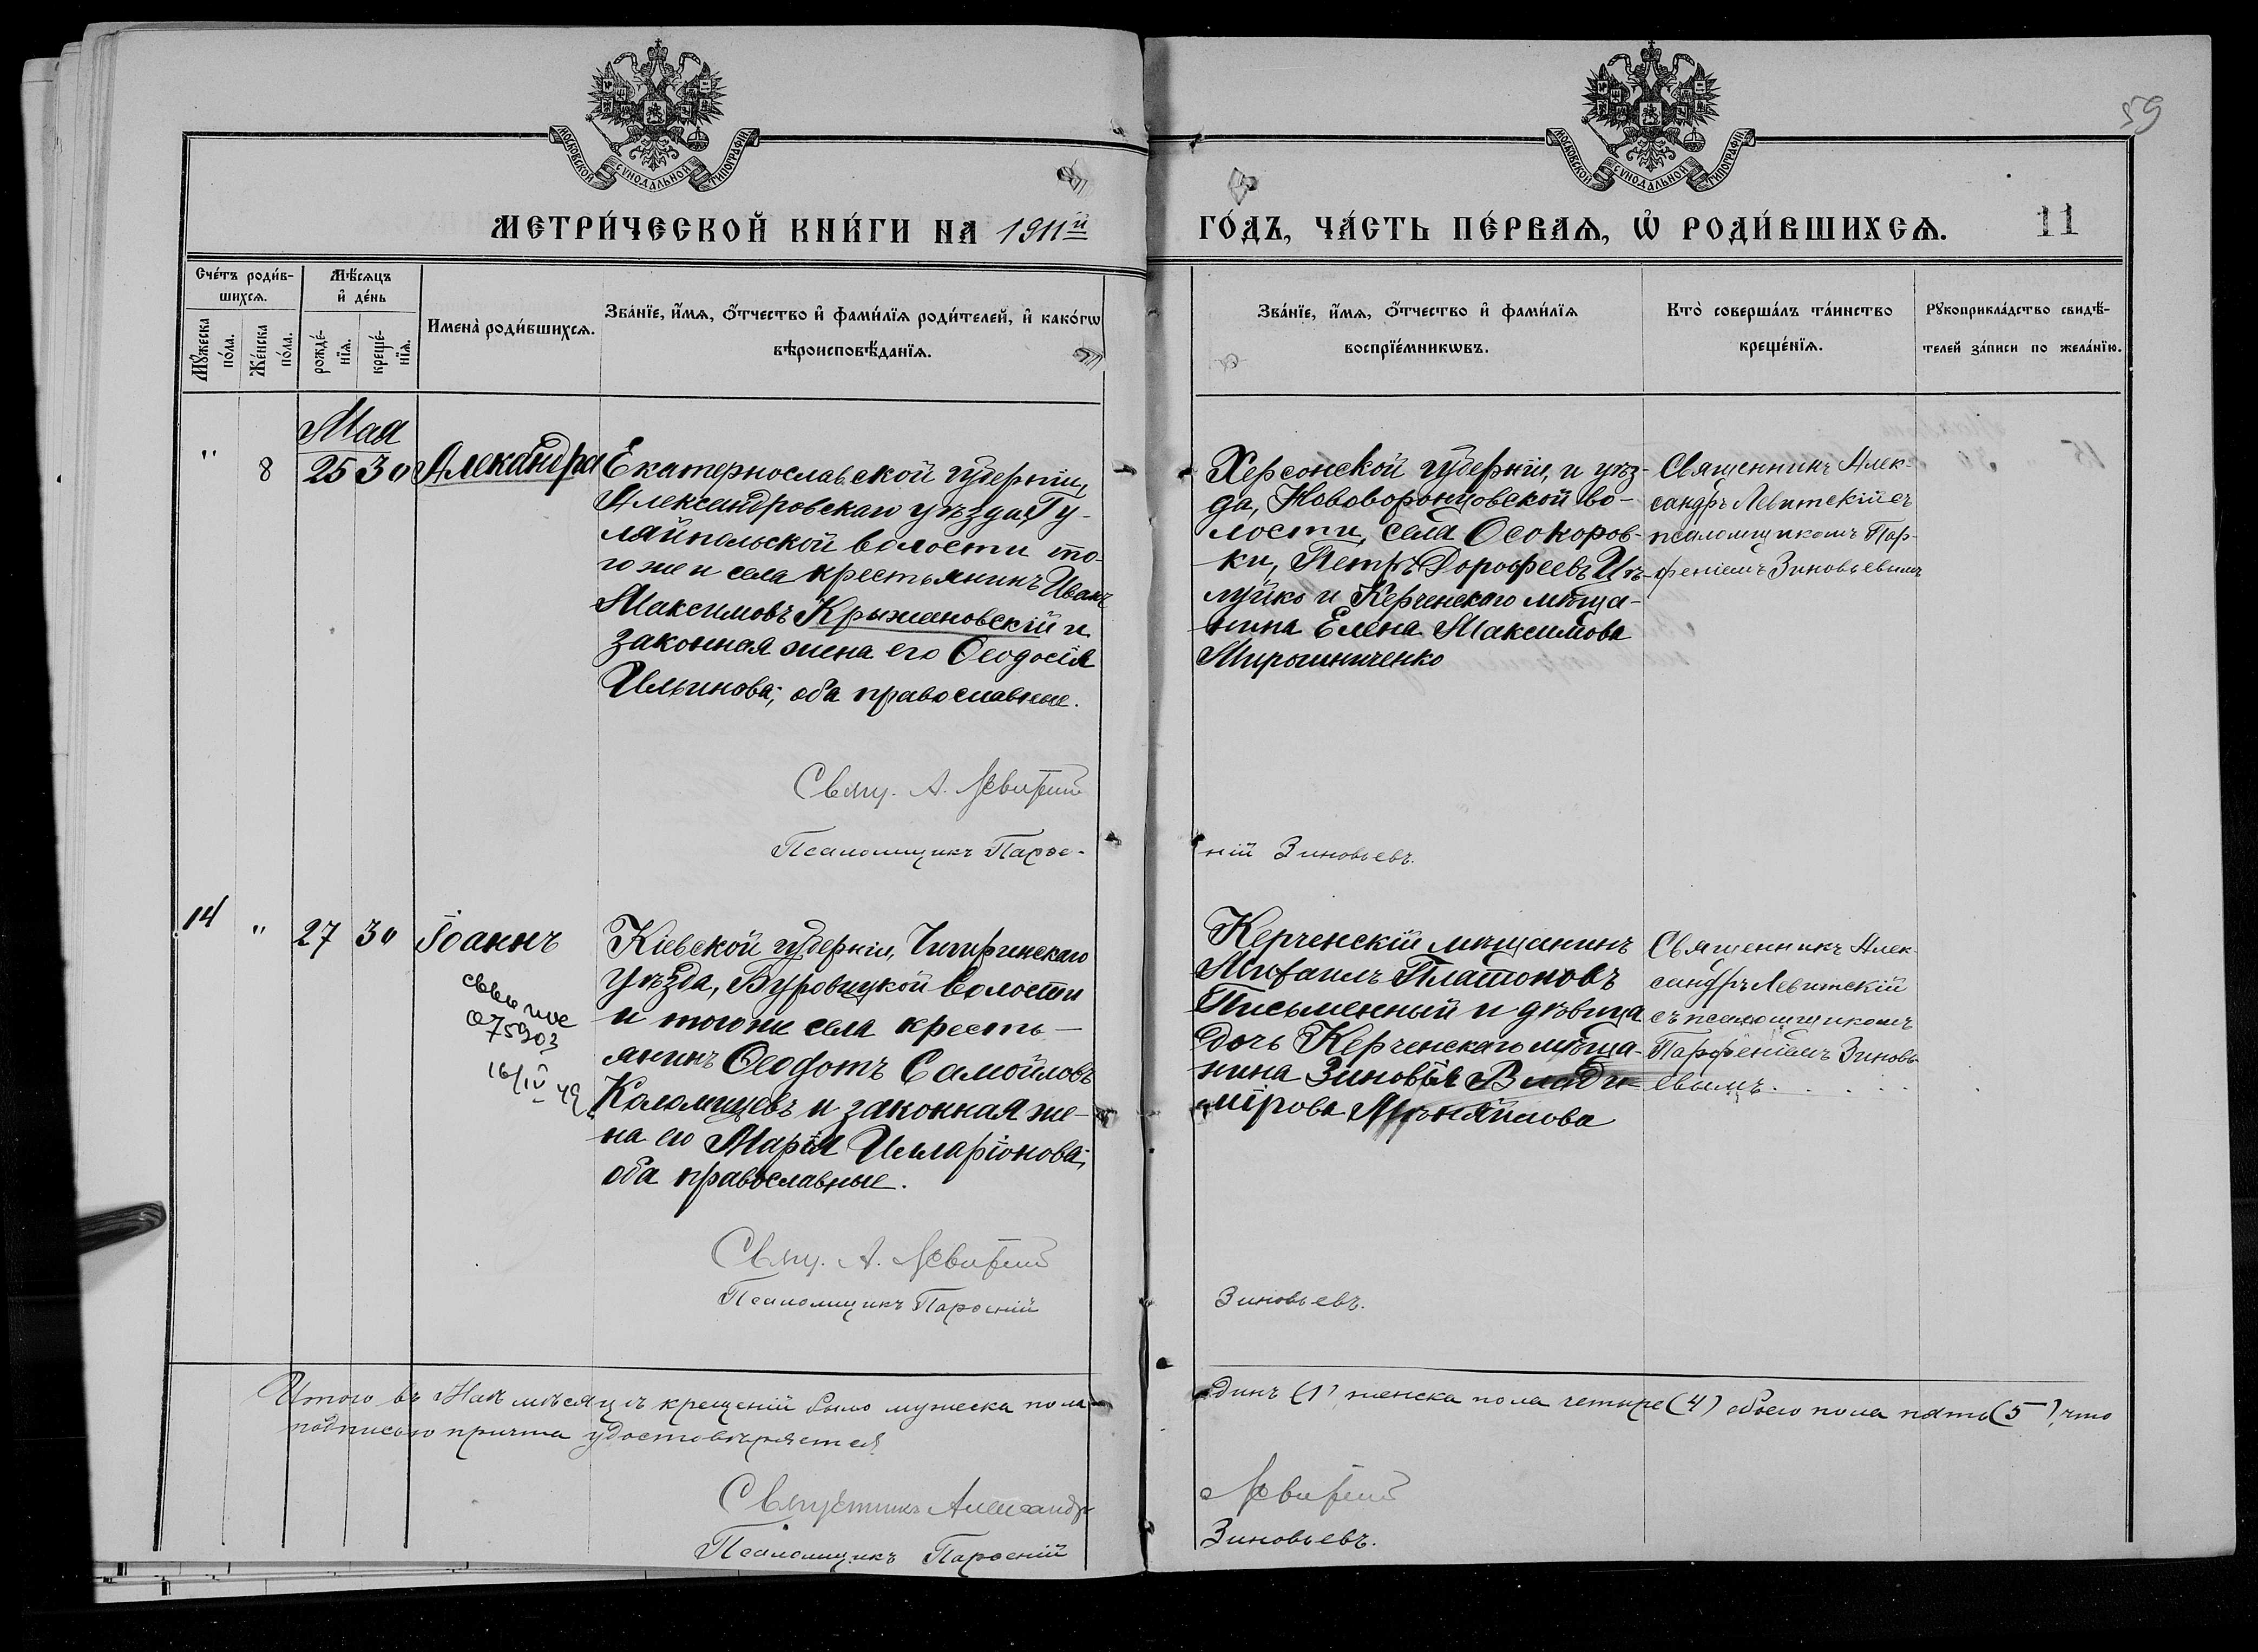 59
МОСКОВСКОЙ СѴНОДАЛЬНОЙ ТИПОГРАФІИ
МОСКОВСКОЙ СѴНОДАЛЬНОЙ ТИПОГРАФІИ
МЕТРИ́ЧЕСКОЙ КНИ́ГИ НА 1911й
ГО́ДЪ, ЧА́СТЬ ПЕ́РВАѦ, Ѡ҆ РОДИ́ВШИХСѦ. 11
Сче́тъ роди́в-
шихсѧ.
Мꙋ́жеска
по́ла.
Же́нска
по́ла.
Мѣ́сѧцъ
и҆ де́нь
рожде́-
нїѧ.
креще́-
нїѧ.
Имена̀ роди́вшихсѧ.
Зва́нїе, и҆́мѧ, ѻ҆́тчество и҆ фами́лїѧ роди́телей, и҆ како́гѡ
вѣроисповѣ́данїѧ.
Зва́нїе, и҆́мѧ, ѻ҆́тчество и҆ фами́лїѧ
воспрїе́мникѡвъ.
Кто̀ соверша́лъ та́инство
креще́нїѧ.
Рꙋкоприкла́дство свидѣ́-
телей за́писи по жела́нїю.
Мая
" 8 25 30 Алекандра
Екатернославской губерніи,
Александровскаго уѣзда, Гу-
ляйпольской волости то-
го же и села крестьянинъ Иванъ
Максимовъ Крыжановскій и
законная жена его Ѳеодосія
Ильинова; оба православные.
Херсонской губерніи, и уѣз-
да, Нововоронцовской во-
лости, села Осокоров-
ки, Петръ Дороѳеевъ
и Керченскаго мѣща-
нина Елена Максимова
Мирошниченко
Священникъ Алек-
сандръ Левитскій съ
псаломщикомъ Пар-
ѳеніемъ Зиновьевымъ
Свящ. А. Левитскій
Псаломщикъ Парѳе-
ній Зиновьевъ.
14 " 27 30 Іоаннъ
075903
16/IV 49
Кіевской губерніи, Чигиринскаго
уѣзда, Буровицкой волости
и того же села кресть-
янинъ Ѳеодотъ Самойловъ
Коломицевъ и законная же-
на его Марія Илларіонова;
оба православные.
Керченскій мѣщанинъ
Михаилъ Платоновъ
Письменный и дѣвица
дочь Керченскаго мѣща-
нина Зиновія Влади-
мірова
Священникъ Алек-
сандръ Левитскій
съ псаломщикомъ
Парѳеніемъ Зиновь-
евымъ.
Свящ. А. Левитскій
Псаломщикъ Парѳеній
Зиновьевъ.
Итого въ Маѣ мѣсяцѣ крещеній было мужеска пола
одинъ (1) женска пола четыре (4) обоего пола пять (5), что
подписью причта удостовѣряется
Священникъ Александръ
Левитскій
Псаломщикъ Парѳеній
Зиновьевъ.